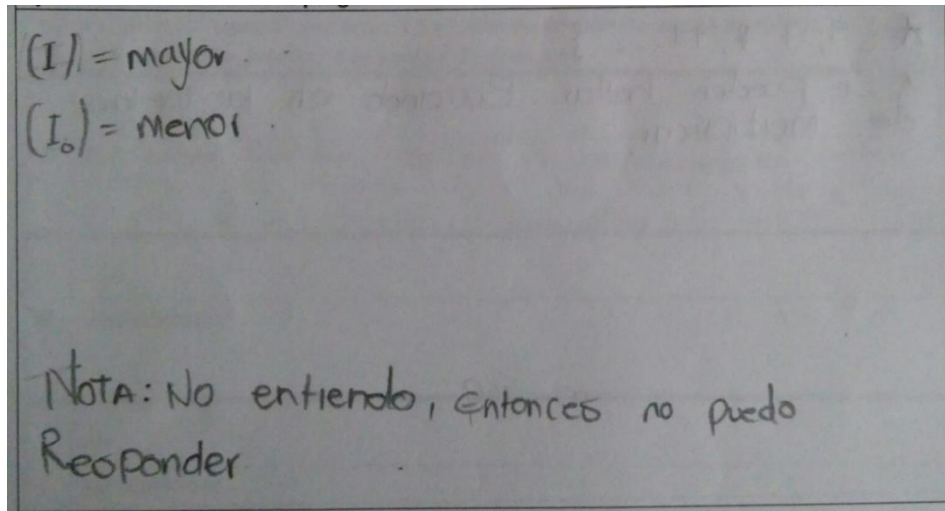 (I) = mayor.
(I₀) = menor.
NOTA: No entiendo, Entonces no puedo
Responder